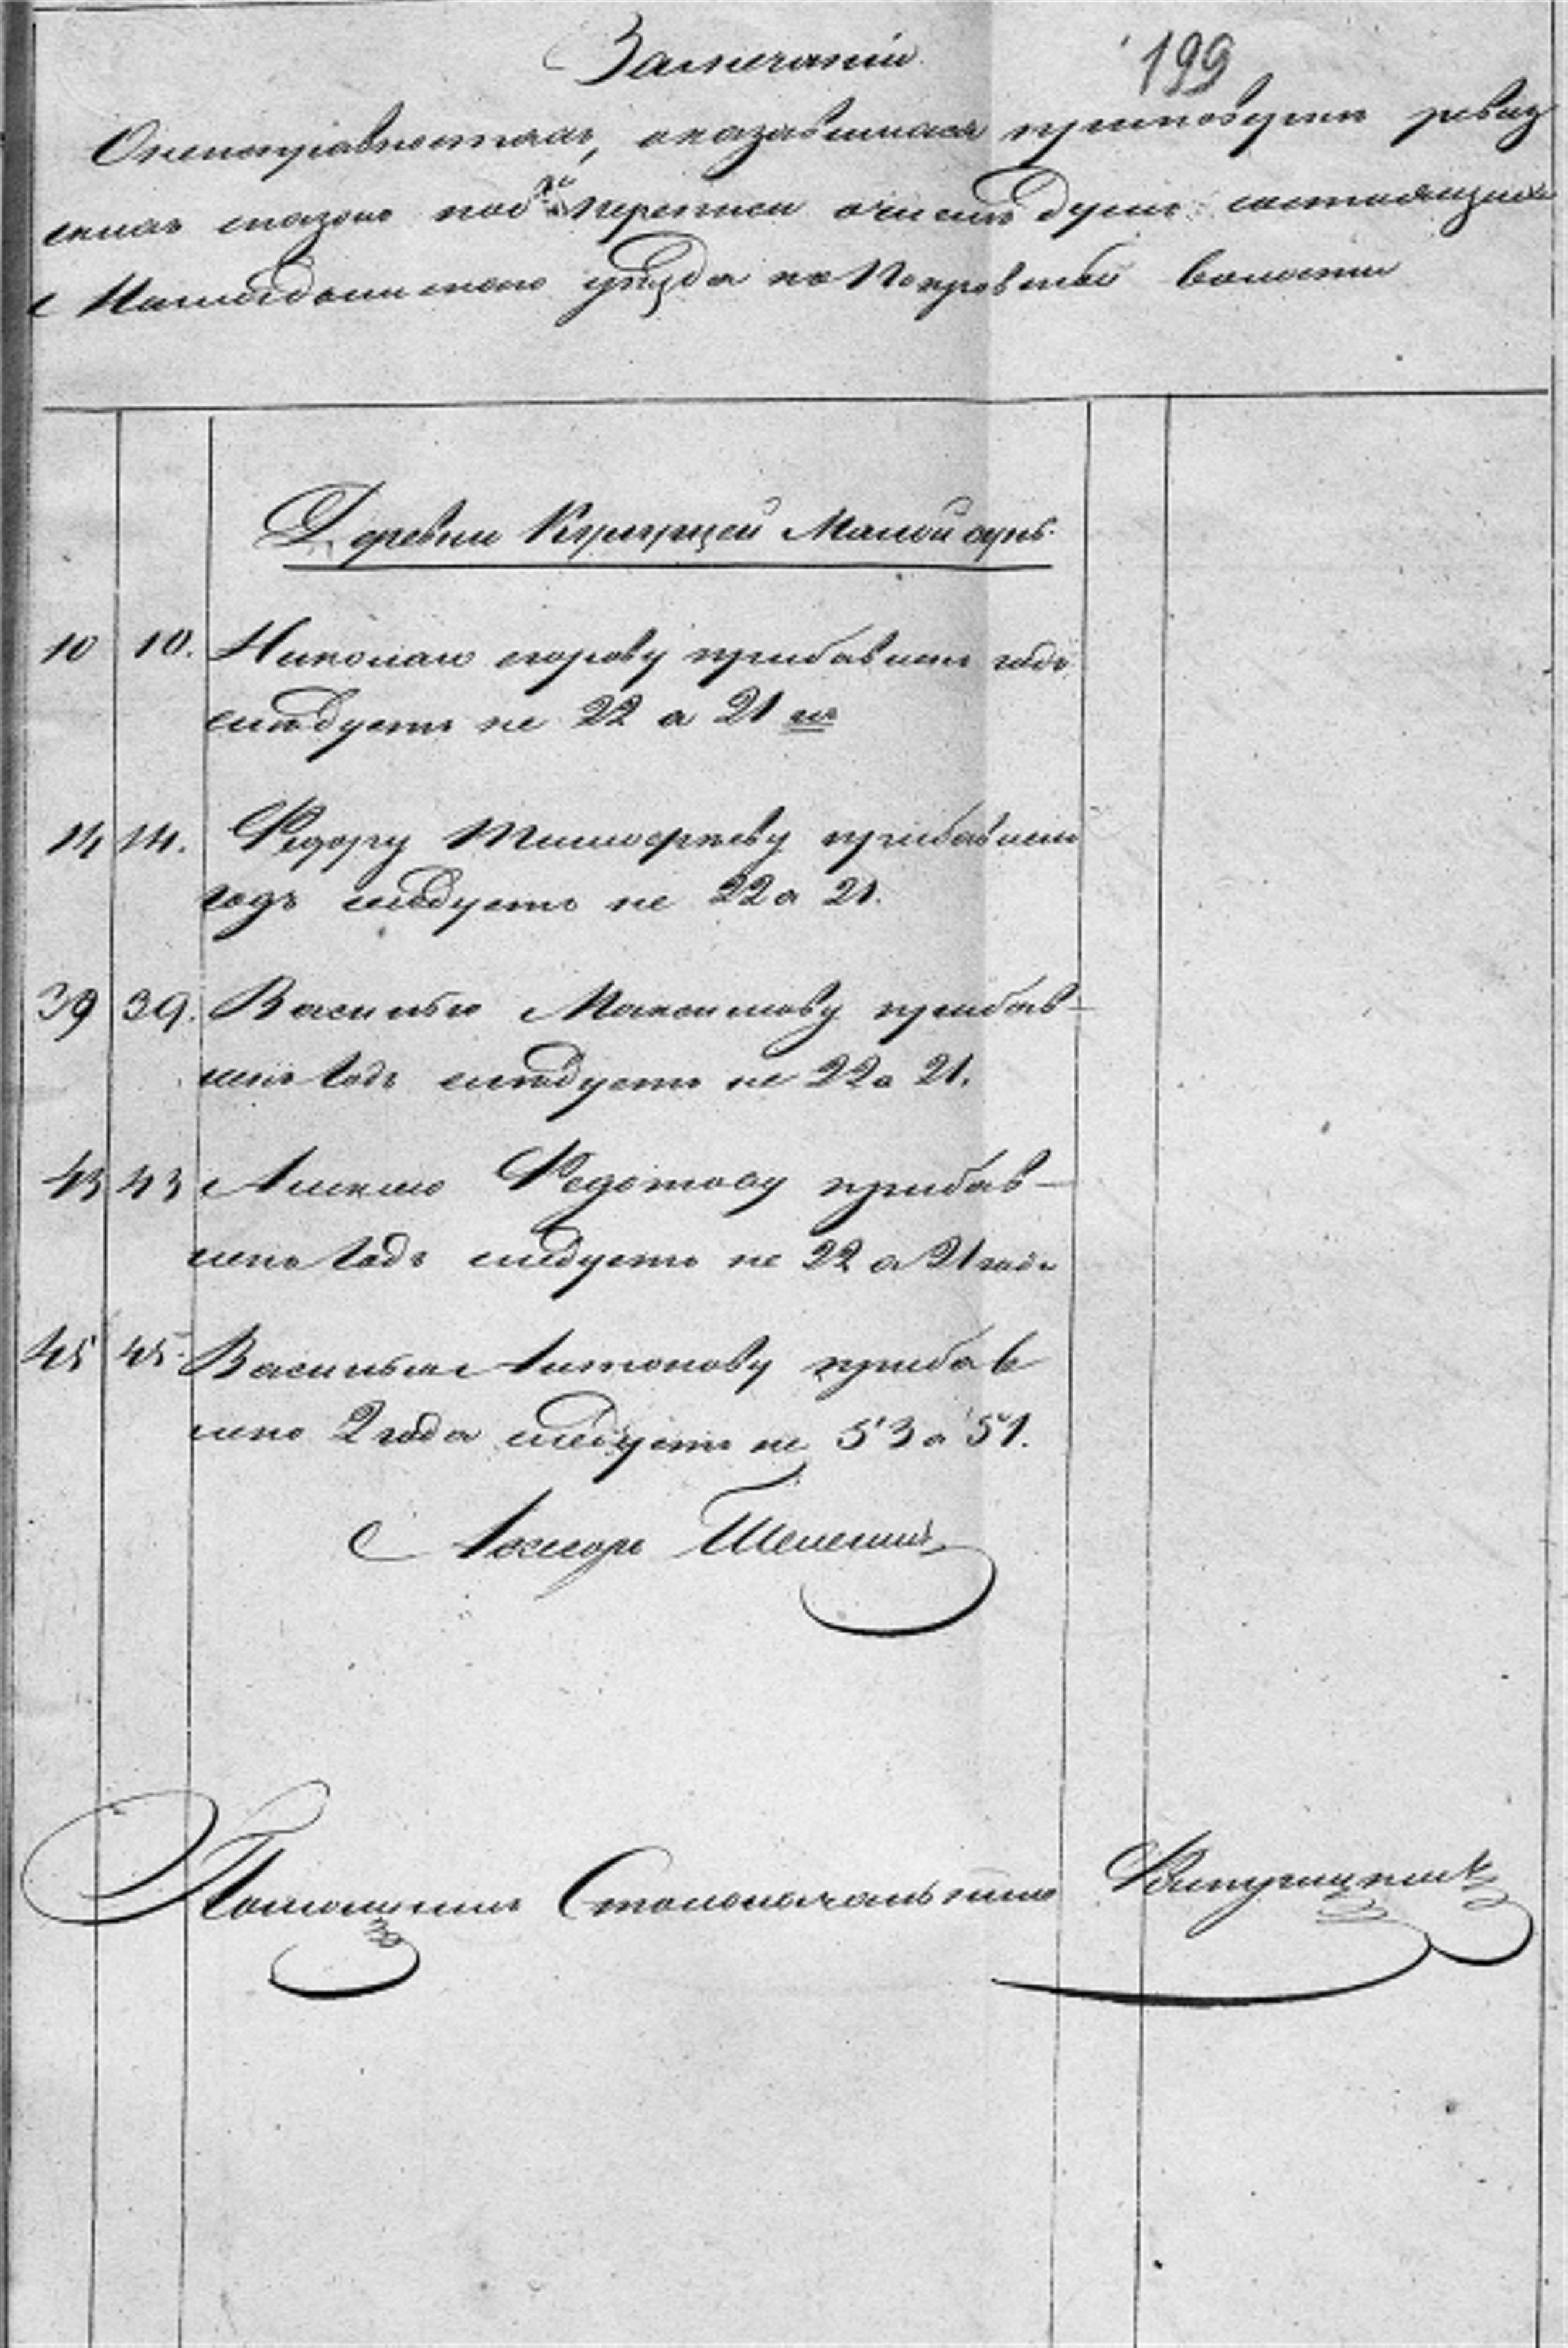 Замечании
199
О неисправностях, оказавшихся при поверки ревиз
ских сказок по 9й переписи о числе душ состоящих
Малмыжского уезда по Покровской волости
Деревни Купрущей Малой
10 10. Николаю егорову прибавлен годъ
следуетъ не 22 а 21 го
14 14. Федору Тимофееву прибавлен
годъ следуетъ не 22 а 21.
39 39. Василью Максимову прибав-
ленъ годъ следуетъ не 22 а 21.
43 43 Алексею Федотову прибав-
ленъ годъ следуетъ не 22 а 21 годъ
45 45. Василью Антонову прибав
лено 2 года следуетъ не 53 а 51.
Ассесоръ Шелешинъ
Помощникъ Столоначальника